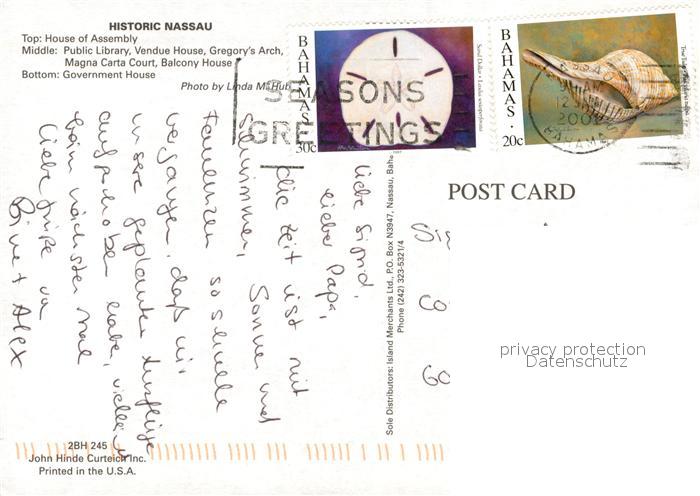 HISTORIC NASSAU
Top: House of Assembly
Middle: Public Library, Vendue House, Gregory's Arch,
Magna Carta Court, Balcony House
Bottom: Government House
Photo by Linda M. Hub
BAHAMAS
30c
Sand Dollar
BAHAMAS
20c
SEASONS
GREETINGS
NASSAU
BAHAMAS
POST CARD
Liebe Sigrid,
lieber Papa,
die Zeit ist mit
Sonne und
schwimmen,
so schnelle
vergangen, daß wir
unsere geplanten Ausflüge
aufgehoben haben, vielleicht
beim nächsten Mal
Liebe Grüße von
+ Alex
Sole Distributors: Island Merchants Ltd., P.O. Box N3947, Nassau, Baha
Phone (242) 323-5321/4
privacy protection
Datenschutz
2BH 245
John Hinde Curteich Inc.
Printed in the U.S.A.